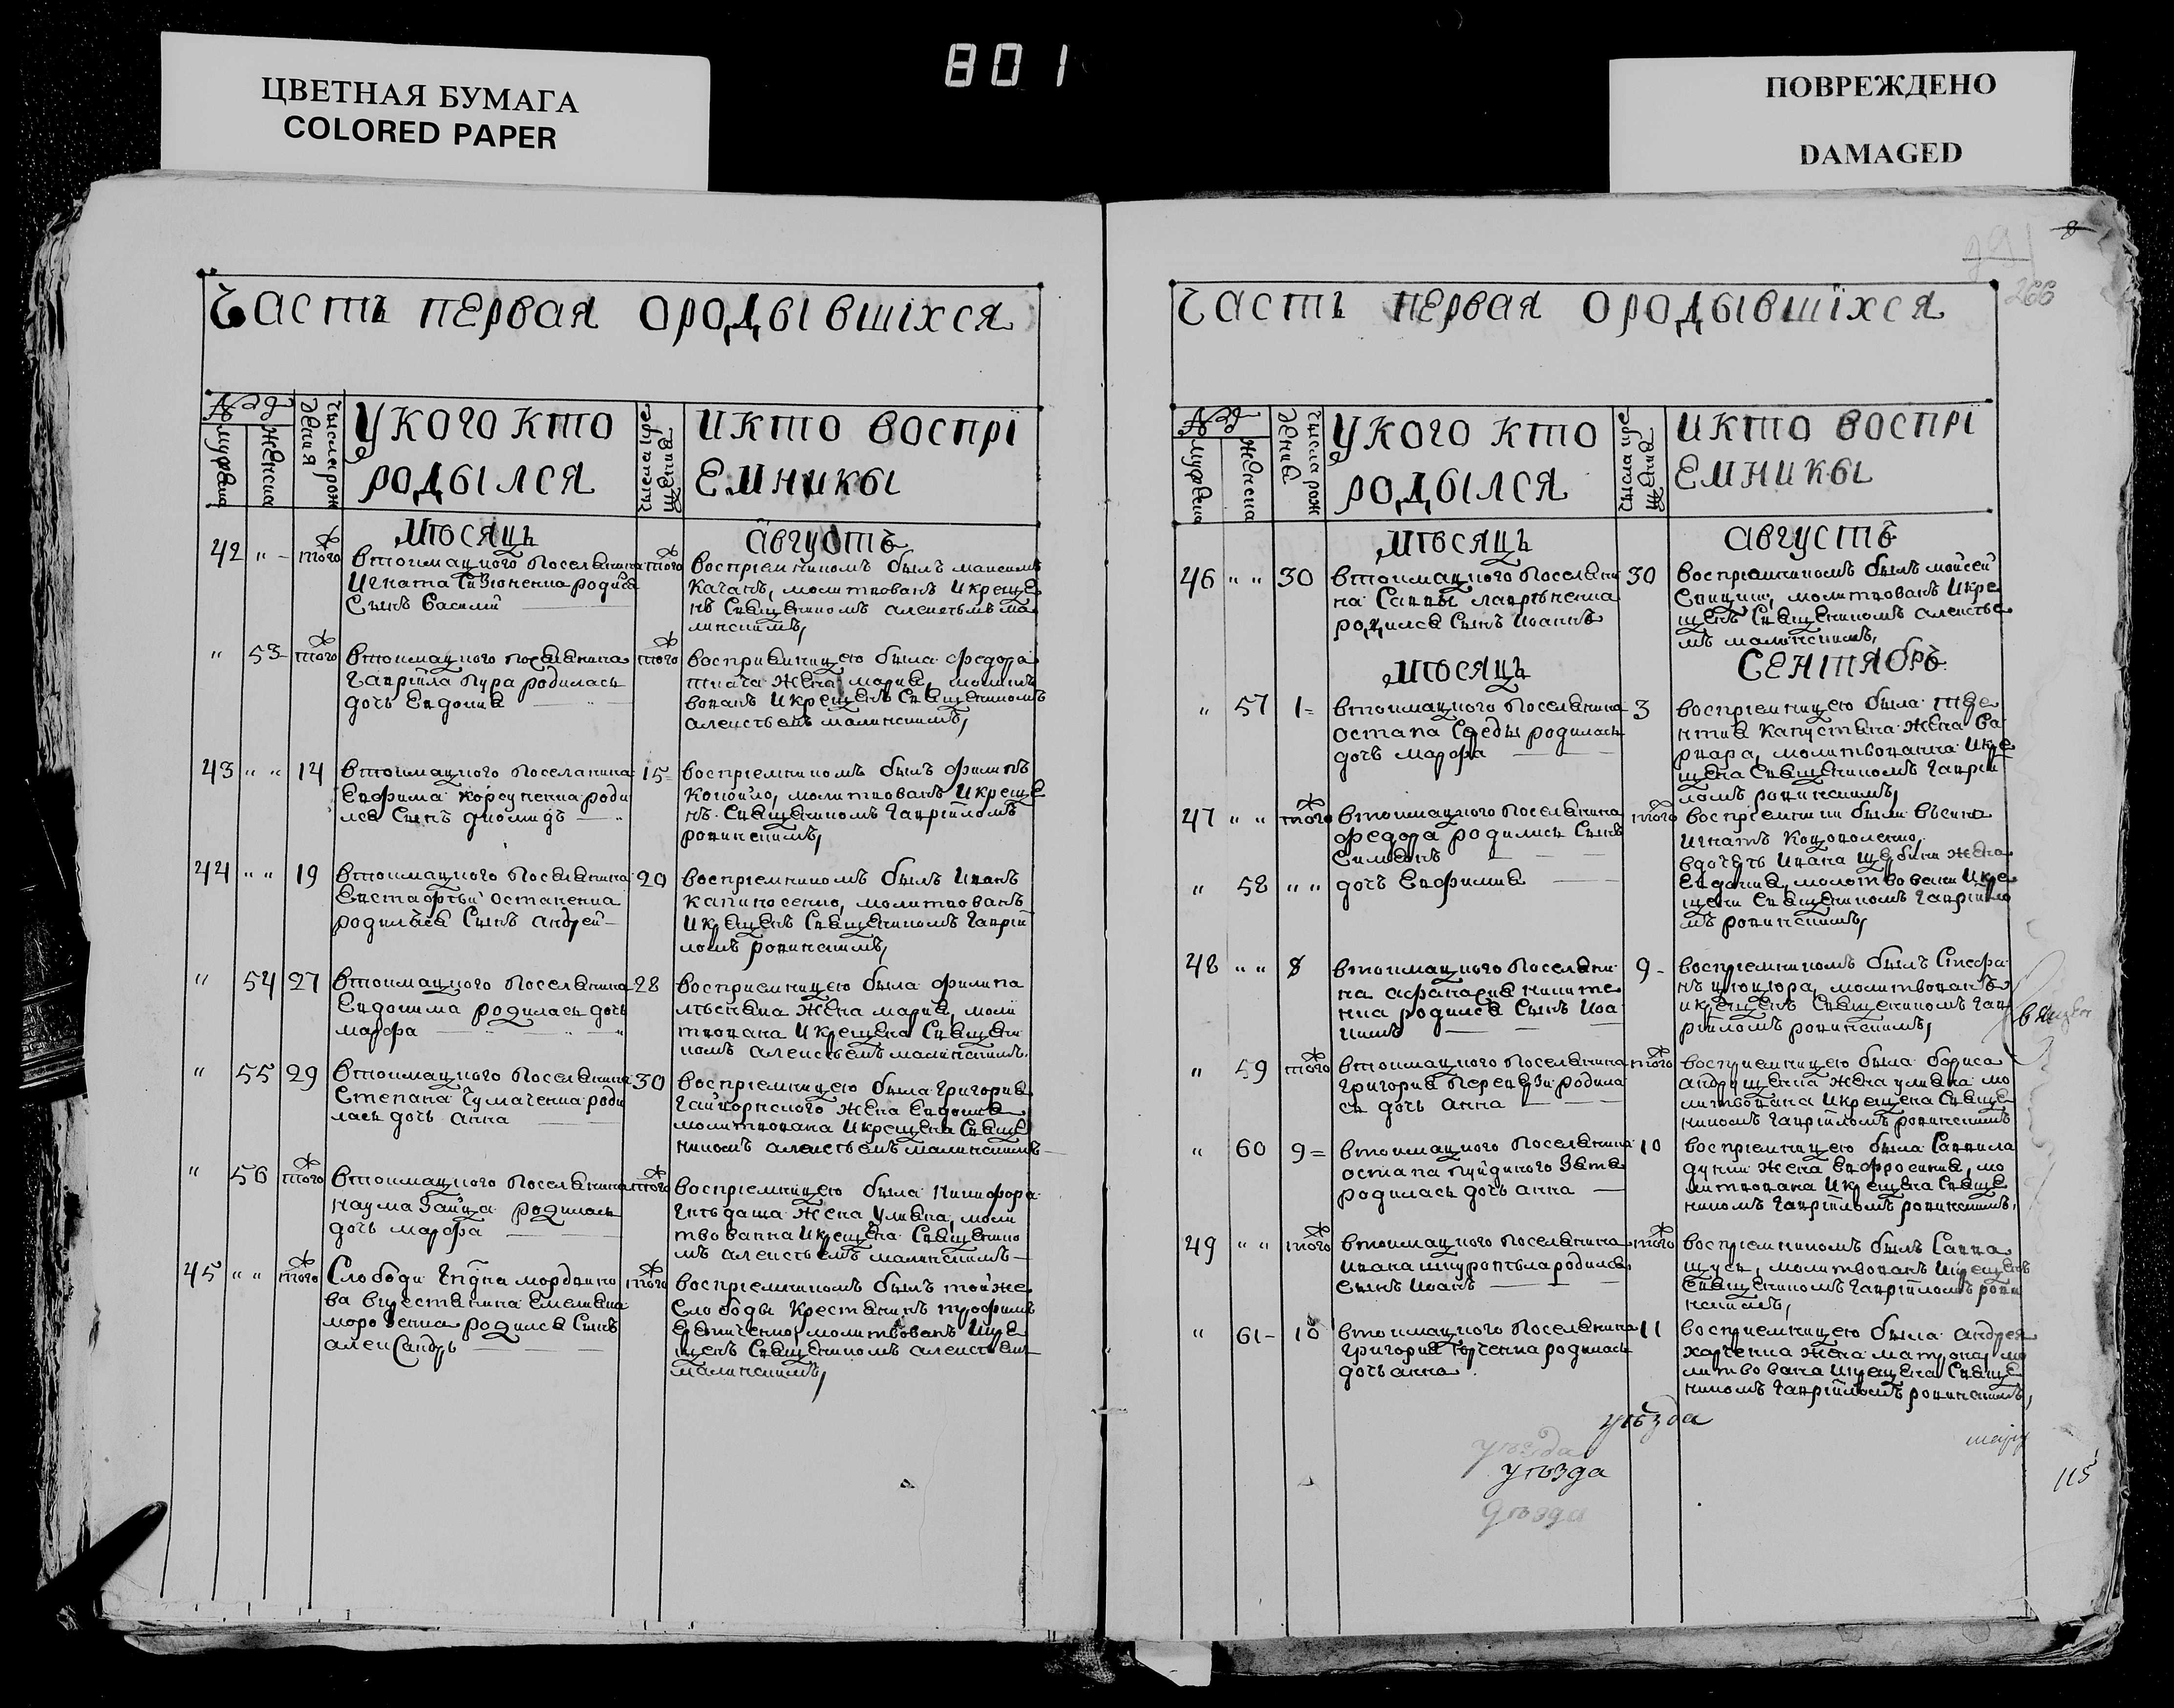 ЦВЕТНАЯ БУМАГА
COLORED PAPER
801
ПОВРЕЖДЕНО
DAMAGED
Часть первая ородывшіхся
№
мужеска
женска
числа рож
дения
У кого кто
родылся
числа кре
щения
и кто воспрі
емникы
мѣсяцъ
августъ
42 " - того
втоимацкого поселянина
Игната родися
Сынъ Василий
того
воспріемникомъ былъ максимъ
Качанъ, молитвованъ и креще
нъ Священикомъ алексѣемъ ма
линскимъ,
" 53 того
втоимацкого поселянина
Гавріила Пура родилась
дочь Евдокия
того
восприемницею была федора
ткача жена мария, молит
вованъ и крещенъ Священикомъ
алексѣемъ малинскимъ,
43 " " 14
втоимацкого поселянина
Евфима корсуненка роди
лся Сынъ диомидъ
15
воспріемникомъ былъ филипъ
молитвованъ и креще
нъ Священикомъ Гавріиломъ
ровинскимъ,
44 " " 19
втоимацкого поселянина
Евстафий остапенка
родился Сынъ андрей
20
воспріемникомъ былъ Иванъ
капиносенко, молитвованъ
и крещенъ Священикомъ Гаврій
ломъ ровинскимъ,
" 54 27
втоимацкого поселянина
Евдокима родилась дочь
марфа
28
восприемницею была филипа
жена мария, моли
твована и крещена Священи
комъ алексѣемъ малинскимъ.
" 55 29
втоимацкого поселянина
Степана Чумаченка роди
лась дочь анна
30
воспріемницею была григория
гайворнского жена Евдокия
молитвована и крещена Свяще
никомъ алексѣемъ малинскимъ
" 56 того
втоимацкого поселянина
наума Зайца родилась
дочь марфа
того
воспріемницею была никифора
жена Улияна, моли
твованна и крещена Священико
мъ алексѣемъ малинскимъ
45 " " того
Слободи мордвино
ва крестянина Емелияна
морозенка родился Сынъ
алеКсандръ
того
воспріемникомъ былъ тойже
Слободы крестянинъ трофимъ
молитвованъ и кре
щенъ Священикомъ алексѣем
малинскимъ,
266
Часть первая ородывшіхся
№
мужеска
женска
числа рож
дения
У кого кто
родылся
числа кре
щения
и кто воспрі
емникы
мѣсяцъ
августъ
46 " " 30
втоимацкого поселяни
на Саввы лаврѣненка
родился Сынъ Иоаннъ
30
воспріемникомъ былъ мойсей
молитвованъ и кре
щенъ Священикомъ алексѣе
мъ малинскимъ,
мѣсяцъ
СЕНТЯБРЬ
" 57 1
втоимацкого поселянина
остапа Среды родилась
дочь марфа
3
воспріемницею была
капустяна жена ва
рвара, молитвованна и кре
щена Священикомъ гаврій
ломъ ровинскимъ,
47 " " того
втоимацкого поселянина
федора родились Сынъ
Симеонъ
того
воспріемники были
Игнатъ
" 58 " "
дочь Евфимия
вдочеръ Ивана щербини жена
Евдокия, молотвовани и кре
щени Священикомъ гавріило
мъ ровинскимъ,
48 " " 8
втоимацкого поселяни
на афанасия никите
нка родился Сынъ Иоа
кимъ
9
воспріемникомъ былъ Стефа
нъ молитвованъ
и крещенъ Священикомъ гав
ріиломъ ровинскимъ,
" 59 того
втоимацкого поселянина
григория родила
сь дочь анна
того
восприемницею была бориса
андрущенка жена улияна мо
литвована и крещена Свяще
никомъ гавріиломъ ровинскимъ
" 60 9
втоимацкого поселянина
остапа Зятя
родилась дочь анна
10
воспріемницею была
жена Евфросиния, мо
литвована и крещена Свяще
никомъ гавріиломъ ровинскимъ,
49 " " того
втоимацкого поселянина
Ивана родился
сынъ Иоанъ
того
воспріемникомъ былъ Савва
щусь, молитвованъ и крещенъ
Священикомъ гавріиломъ рови
нскимъ,
" 61 10
втоимацкого поселянина
григория родилась
дочь анна
11
восприемницею была андрея
харченка жена матрона мо
литвована и крещена Свяще
никомъ гавріиломъ ровинскимъ,
уѣзда
уѣзда
уѣзда
уѣзда
115